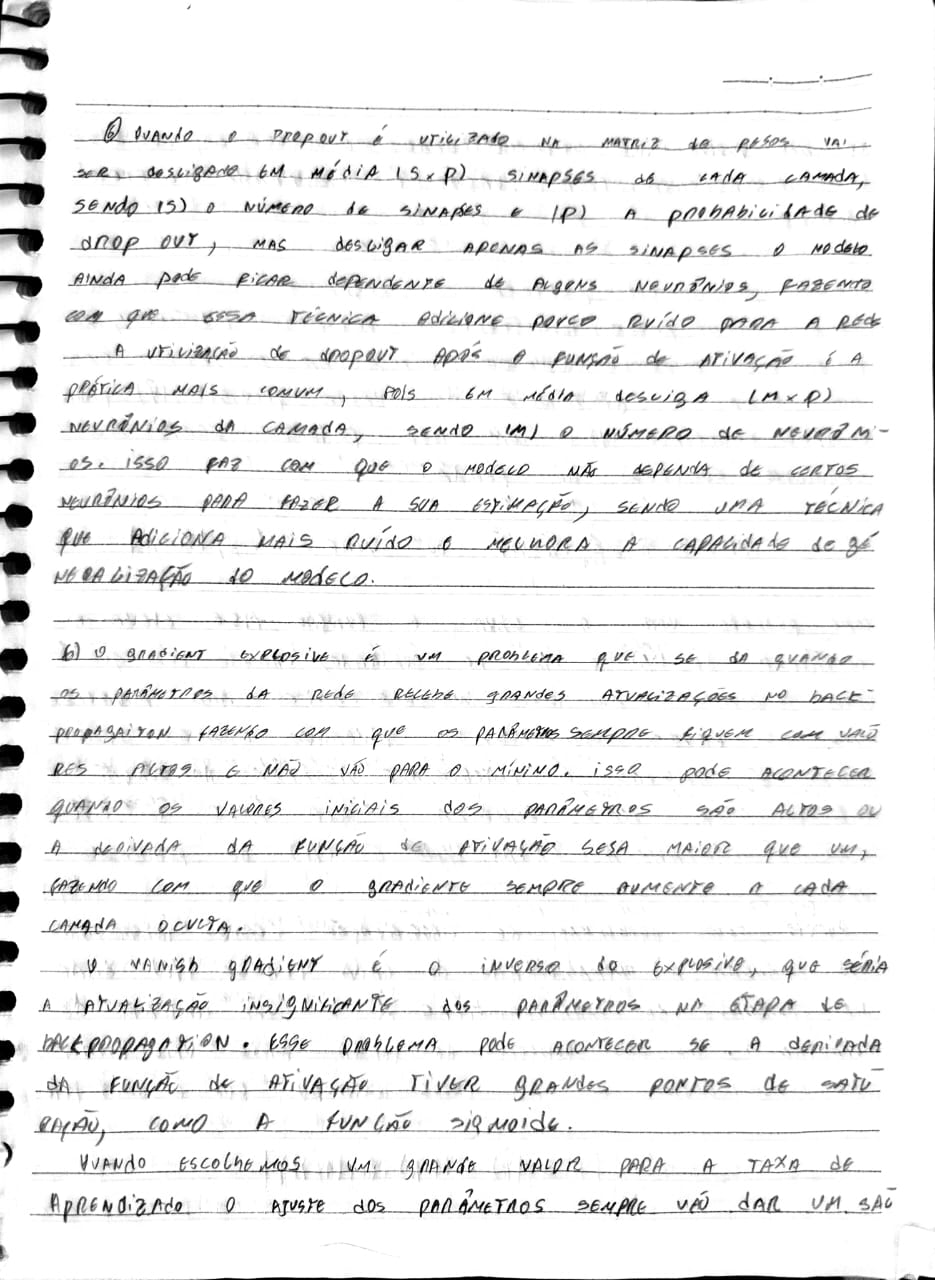 6) QUANDO O DROPOUT É UTILIZADO NA MATRIZ de PESOS VAI
SER desligado EM MÉDIA (S x P) SINAPSES de CADA CAMADA,
SENDO (S) O NÚMERO de SINAPSES E (P) A PROBABILIDADE de
dROP OUT, MAS desligAR APENAS AS SINAPSES O Modelo
AINDA Pode FICAR dependente de Alguns NEURÔNIOS, FAZENTO
COM QUE ESSA TÉCNICA AdICIONE POUCO RUÍDO PARA A REDE
A UTILIZAÇÃO de dROPOUT APÓS A FUNÇÃO de ATIVAÇÃO É A
PRÁTICA MAIS COMUM, POIS EM MÉdIA desligA (M x P)
NEURÔNIOS dA CAMADA, SENDO (M) O NÚMERO de NEURÔNI-
OS. ISSO FAZ COM QUE O MODELO NÃO dEPENDA DE CERTOS
NEURÔNIOS PARA FAZER A SUA ESTIMAÇÃO, SENDO UMA TÉCNICA
QUE ADICIONA MAIS RUÍDO E MELHORA A CAPACIDADE de GE
NERALIZAÇÃO do MODELO.
6) O gRADIENT EXPLOSIVE É UM PROBLEMA QUE SE DA QUANDO
OS PARÂMETROS DA REDE RECEBE GRANDES ATUALIZAÇÕES NO BACK-
PROPAGAITON FAZENDO COM QUE OS PARÂMETROS SEMPRE FIQUEM COM VALO
RES ALTOS E NÃO VÃO PARA O MÍNINO. ISSO PODE ACONTECER
QUANDO OS VALORES INICIAIS DOS PARÂMETROS SÃO ALTOS OU
A DERIVADA, DA FUNÇÃO de ATIVAÇÃO SEJA MAIOR QUE UM,
FAZENDO COM QUE O gRADIENTE SEMPRE AUMENTE A CADA
CAMADA OCULTA.
O VANISH gRADIENT É O INVERSO DO EXPLOSIVE, QUE SÉRIA
A ATUALIZAÇÃO INSIGNIFICANTE dOS PARÂMETROS NA ETAPA DE
BACKPROPAGATION. ESSE PROBLEMA PODE ACONTECER SE A DERIVADA
DA FUNÇÃO DE ATIVAÇÃO TIVER GRANDES PONTOS DE SATU
RAÇÃO, COMO A FUNÇÃO SIGMOIDE.
QUANDO ESCOLHEMOS UM GRANDE VALOR PARA A TAXA DE
APRENDIZADO O AJUSTE dOS PARÂMETROS SEMPRE VÃO DAR UM SAO